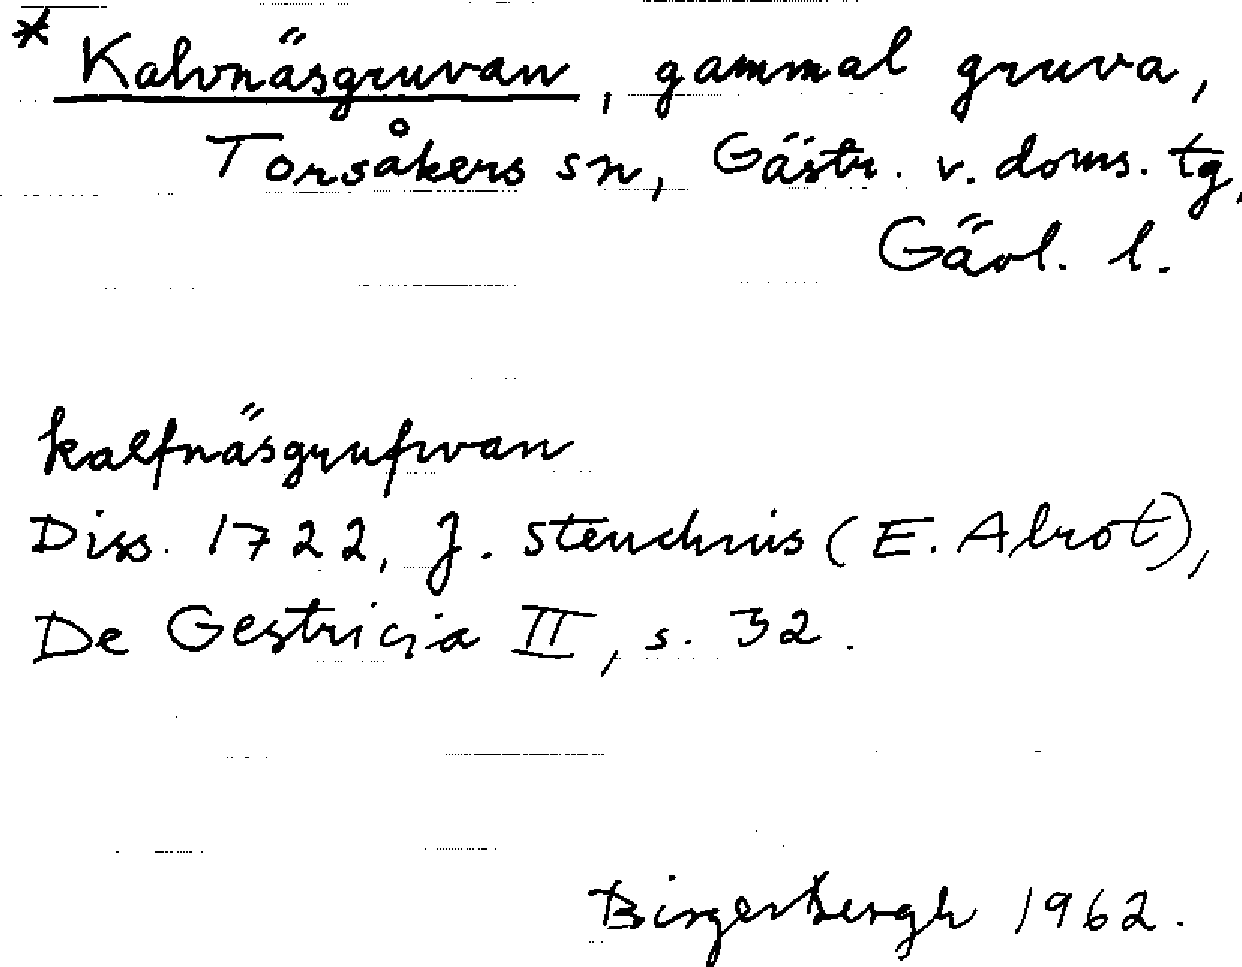 * Kalvnäsgruvan, gammal gruva,
Torsåkers sn, Gästr. v. doms. tg,
Gävl. l.
kalfnäsgrufwan
Diss. 1722, J. Steuchius (E. Alrot),
De Gestricia II, s. 32.
Birger Bergh 1962.